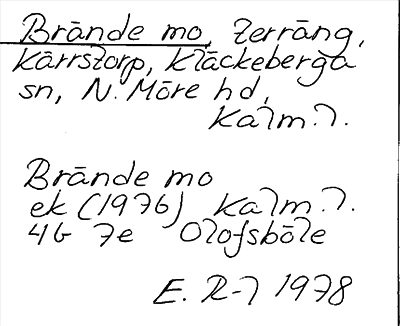 Brände mo, Terräng,
Kärrstorp, Kläckeberga
sn, N. Möre hd,
Kalm. l.
Brände mo
ek (1976) Kalm. l.
4G 7e Olofsböle
E. R-l 1978